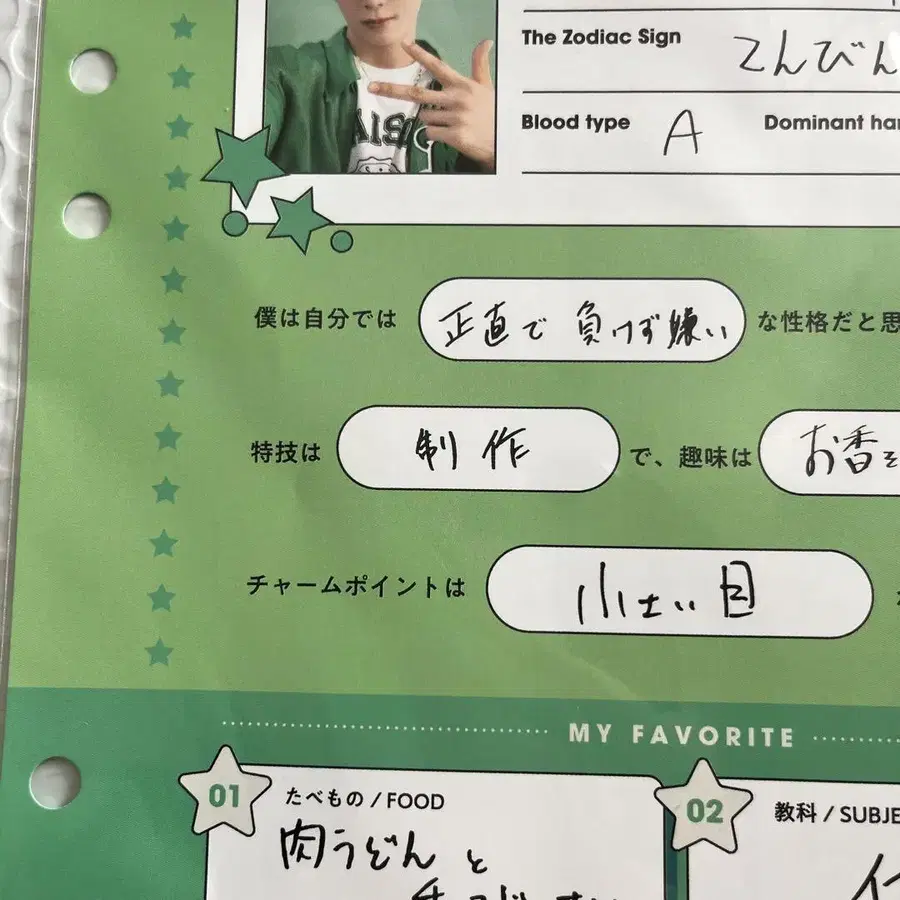 The Zodiac Sign てんびん
Blood type A Dominant han
僕は自分では 正直で 負けず嫌い な性格だと思
特技は 制作 で、趣味は お香を
チャームポイントは 小さい目
MY FAVORITE
01 たべもの / FOOD
肉うどん と
02 教科 / SUBJE